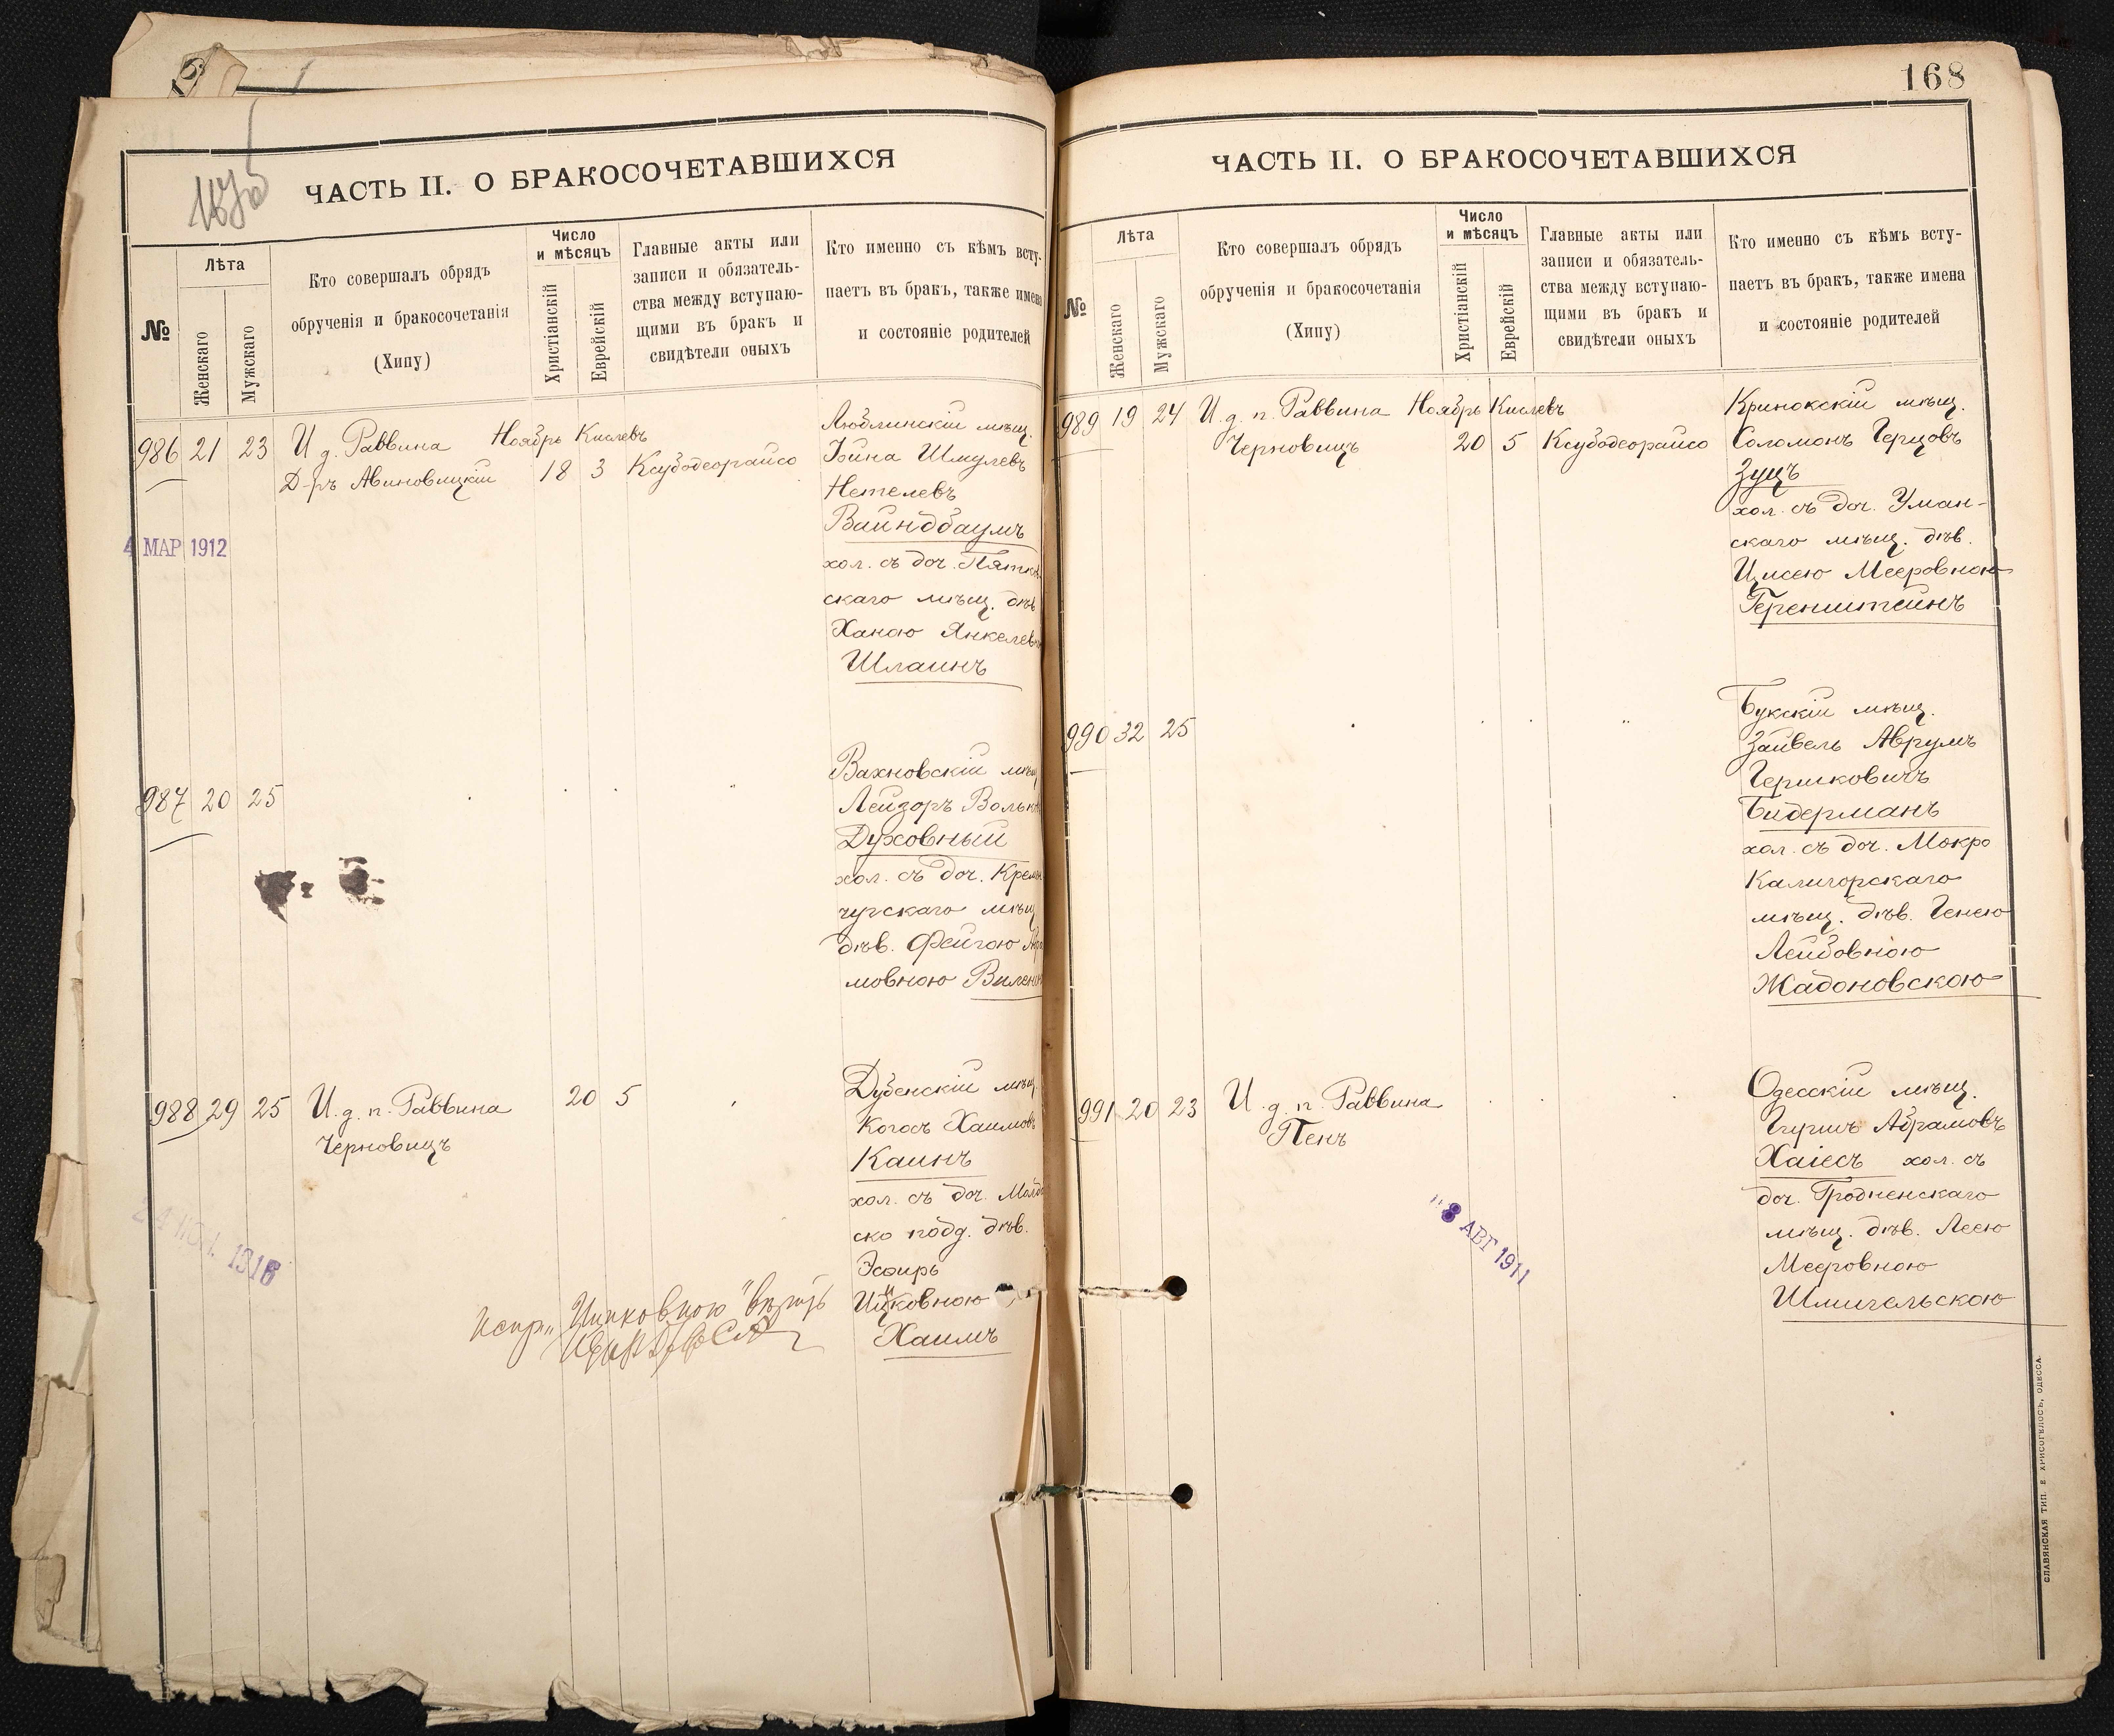 ЧАСТЬ II. О БРАКОСОЧЕТАВШИХСЯ
№
Лѣта
Женскаго
Мужскаго
Кто совершалъ обрядъ
обрученія и бракосочетанія
(Хипу)
Число
и мѣсяцъ
Христіанскій
Еврейскій
Главные акты или
записи и обязатель-
ства между вступаю-
щими въ бракъ и
свидѣтели оныхъ
Кто именно съ кѣмъ всту-
паетъ въ бракъ, также имена
и состояніе родителей
986 21 23 И д. Раввина Ноябрь Кислевъ
Д-ръ Авиновицкій 18 3 Ксубодеорайсо
Люблинскій мѣщ.
Іойна Шмулевъ
Нетелевъ
Вайндбаумъ
хол. съ доч.
скаго мѣщ. дѣв
Ханою
Шлаинъ
4 МАР 1912
987 20 25 " 
Вахновскій
Лейзоръ
Духовный
хол. съ доч.
чугскаго
дѣв. Фейгою
мовною
988 29 25 И. д. п. Раввина 20 5
Черновицъ
Дубенскій мѣщ.
Когосъ Хаимовъ
Каинъ
хол. съ доч.
ско подд. дѣв.
Эсѳирь
Хаимъ
1916
168
ЧАСТЬ II. О БРАКОСОЧЕТАВШИХСЯ
№
Лѣта
Женскаго
Мужскаго
Кто совершалъ обрядъ
обрученія и бракосочетанія
(Хипу)
Число
и мѣсяцъ
Христіанскій
Еврейскій
Главные акты или
записи и обязатель-
ства между вступаю-
щими въ бракъ и
свидѣтели оныхъ
Кто именно съ кѣмъ всту-
паетъ въ бракъ, также имена
и состояніе родителей
989 19 24 И. д. п. Раввина Ноябрь Кислевъ
Черновицъ 20 5 Ксубодеорайсо
Кринокскій мѣщ.
Соломонъ Герцовъ
Зущъ
хол. съ доч. Уман-
скаго мѣщ. дѣв.
Мееровною
Геренштейнъ
990 32 25 "
Букскій мѣщ.
Зайвель Аврумъ
Гершковичъ
Бидерманъ
хол. съ доч. Мокро
Калигорскаго
мѣщ. дѣв. Генею
Лейбовною
Жадоновскою
991 20 23 И. д. п. Раввина
Пенъ
Одесскій мѣщ.
Гершъ Абрамовъ
Хаіесъ хол. съ
доч. Гродненскаго
мѣщ. дѣв. Леею
Мееровною
Шмигельскою
8 АВГ 1911
СЛАВЯНСКАЯ ТИП. Е ХРИСОГЕЛОСЪ, ОДЕССА.